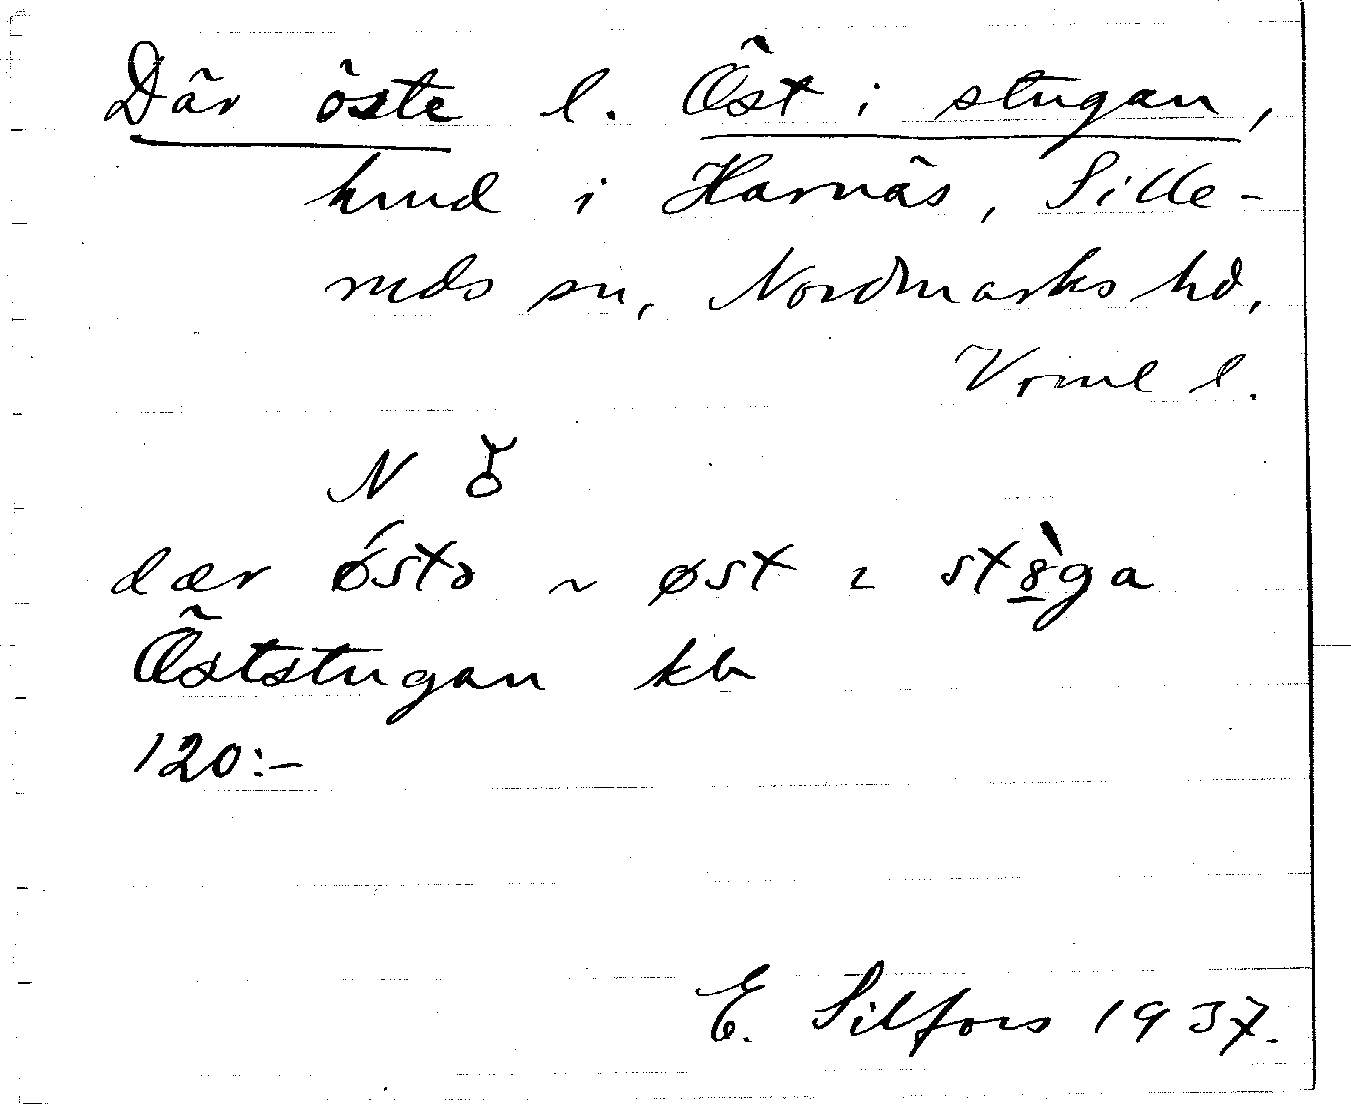 Där öste l. Öst i stugan,
hmd i Harnäs, Sille-
ruds sn, Nordmarks hd,
Vrml l.
N
dær østə ~ øst ı st8̀ga
Öststugan kb
120:-
E. Silfors 1937.